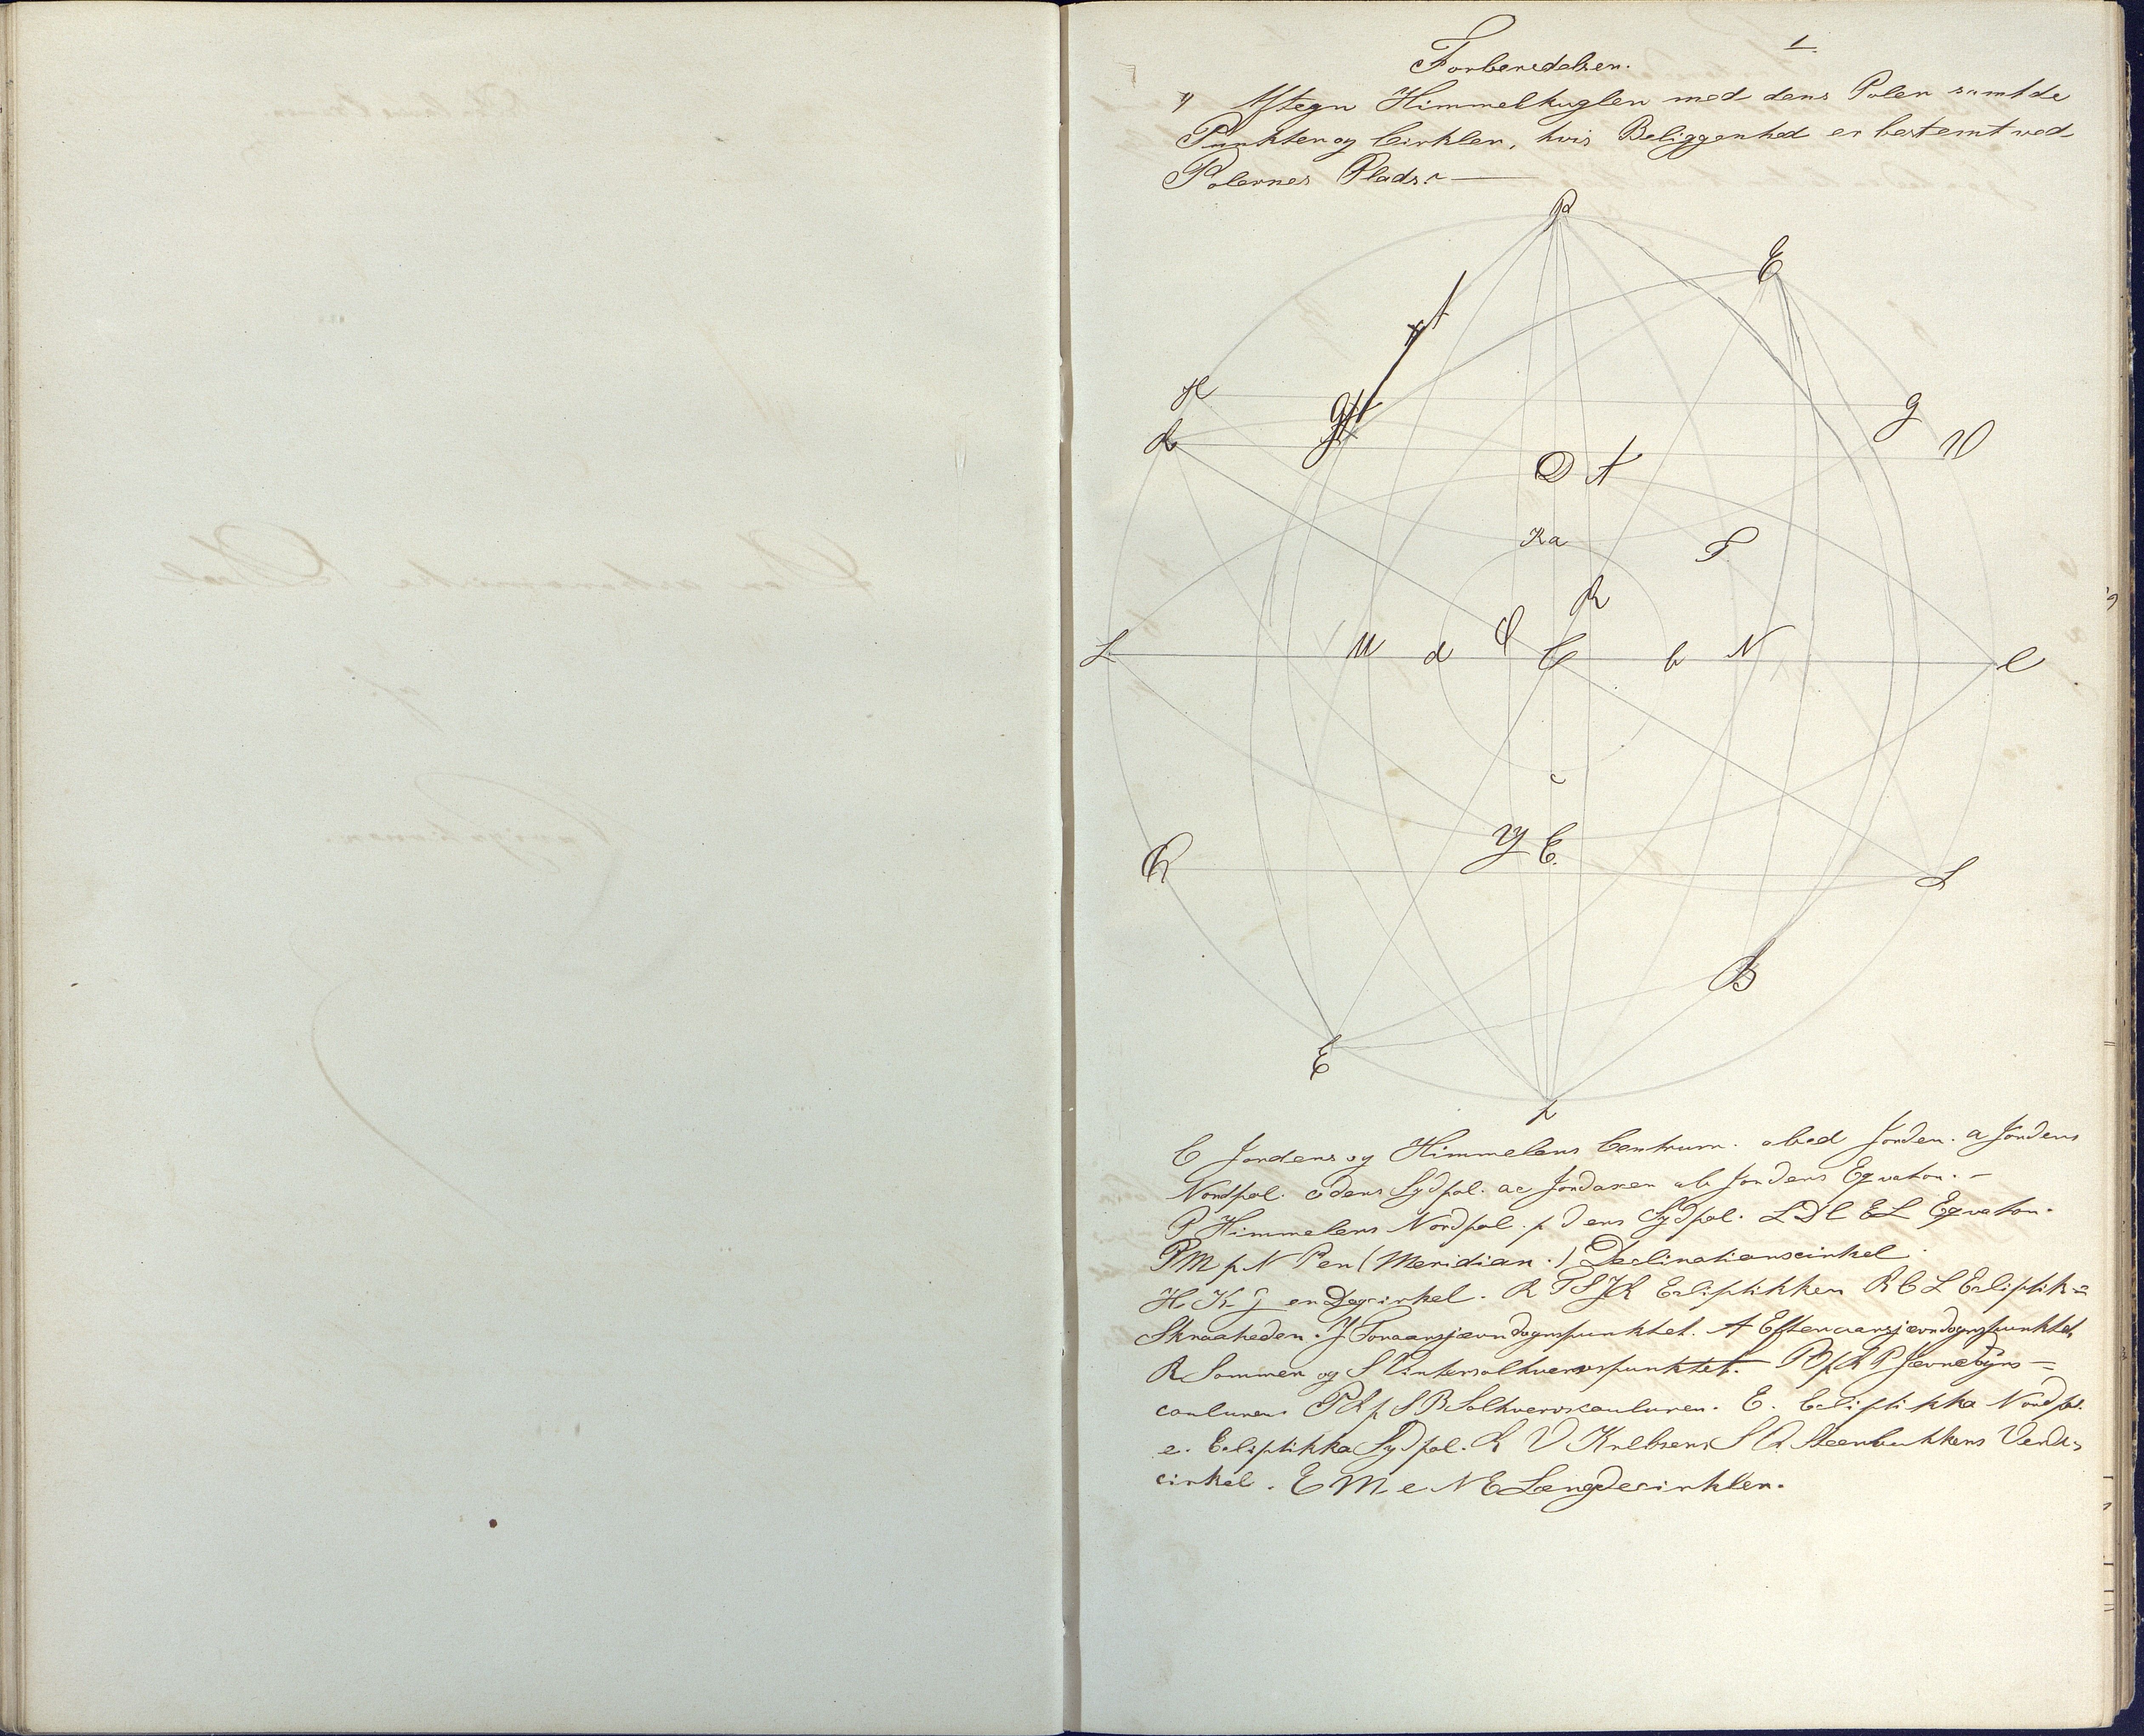 1
Forberedelser.
1) Aftegn Himmelkuglen med dens Poler samt de
Punkter og Cirkler, hvis Beliggenhed er bestemt ved
Polernes Plads.
P
E
H
R
g
V
D A
K a
T
R
L
M
d
C
b
N
l
c
Y E.
R
S
B
E
p
C Jordens og Himmelens Centrum. abcd Jorden. a Jordens
Nordpol. c dens Sydpol. ac Jordaxen db Jordens Eqvator.
P Himmelens Nordpol. p dens Sydpol. L D l E L Eqvator.
P M p N P en (Meridian.) Declinationscirkel
H K g en Dagcirkel. R T S Y R Ecliptikken R C L Ecliptik=
Skraaheden. Y Foraarsjævndøgnspunktet. A Efteraarsjævndøgnspunktet
R Sommer og S Vintersolhvervspunktet. Jævnedøgns=
couluren P R p S B Solhvervscouluren. E. Ecliptikka Nordpol.
e. Ecliptikka Sydpol. R V Krebsens S Q Steenbukkens Vende=
cirkel. E M e N E Længdecirkler.